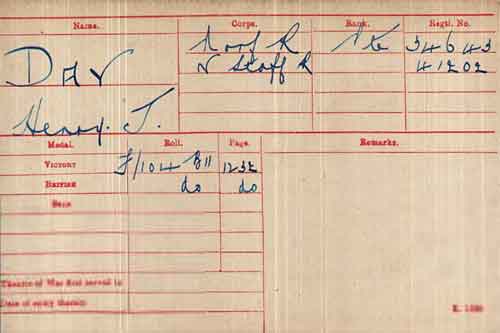 Name. Corps. Rank. Regtl. No.
Day Norf R Pte 34643
N Staff R 41202
Henry. J.
Medal. Roll. Page. Remarks.
Victory F/104 B11 1232
British do do
Star
Theatre of War first served in
Date of entry therein
K. 1380